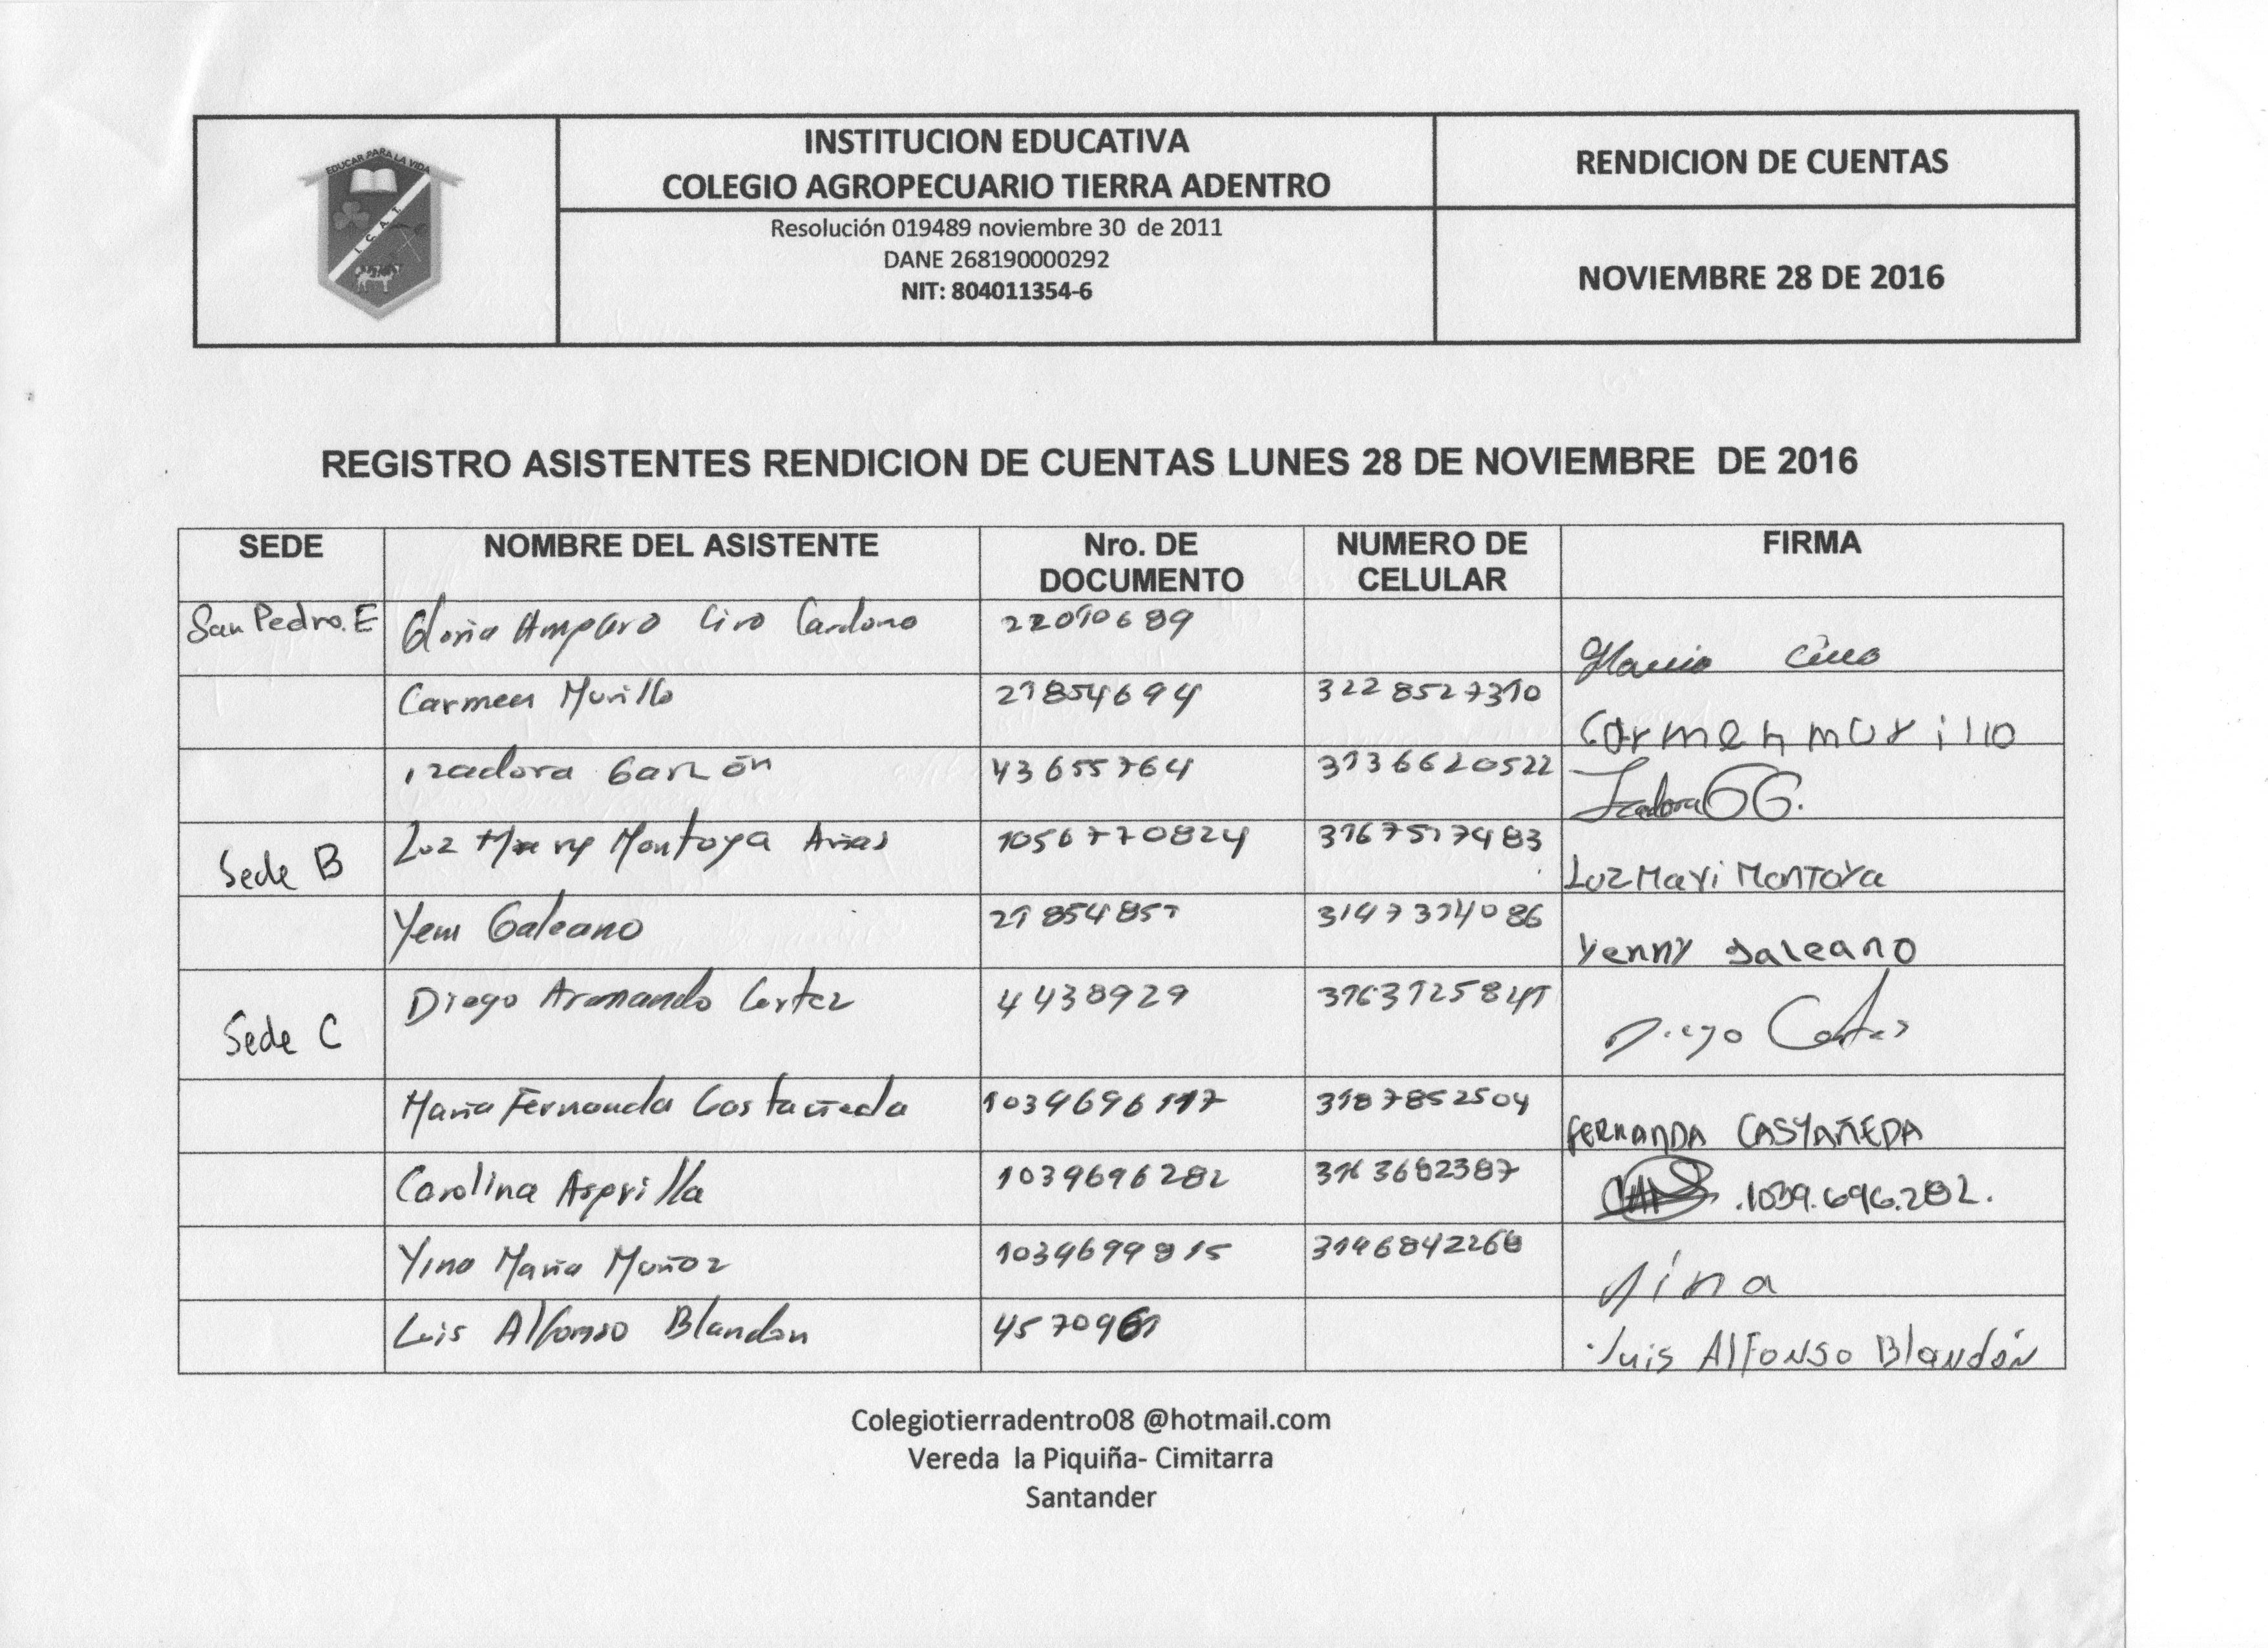 EDUCAR PARA LA VIDA
I. C. A. T.
INSTITUCION EDUCATIVA
COLEGIO AGROPECUARIO TIERRA ADENTRO
RENDICION DE CUENTAS
Resolución 019489 noviembre 30 de 2011
DANE 268190000292
NIT: 804011354-6
NOVIEMBRE 28 DE 2016
REGISTRO ASISTENTES RENDICION DE CUENTAS LUNES 28 DE NOVIEMBRE DE 2016
SEDE NOMBRE DEL ASISTENTE Nro. DE DOCUMENTO NUMERO DE CELULAR FIRMA
San Pedro. E Gloria Amparo Ciro Cardona 22010689 Ciro
Carmen Murillo 21854694 3228527310 Carmen murillo
izadora Garzón 43655764 3136620522 Izadora GG.
Sede B Luz Mary Montoya Arias 1056770824 3167517483 Luz Mari Montoya
Yeni Galeano 21854851 3147314086 Yenny galeano
Sede C Diego Armando Cortez 4438929 3163125841 Diego Cortes
Maria Fernanda Castañeda 1039696117 3187852504 FERNANDA CASTAÑEDA
Carolina Asprilla 1039696282 3163682387 .1039.696.282.
Yina Maria Muñoz 1039699815 3146842268 Yina
Luis Alfonso Blandon 4570961 Luis Alfonso Blandón
Colegiotierradentro08 @hotmail.com
Vereda la Piquiña- Cimitarra
Santander